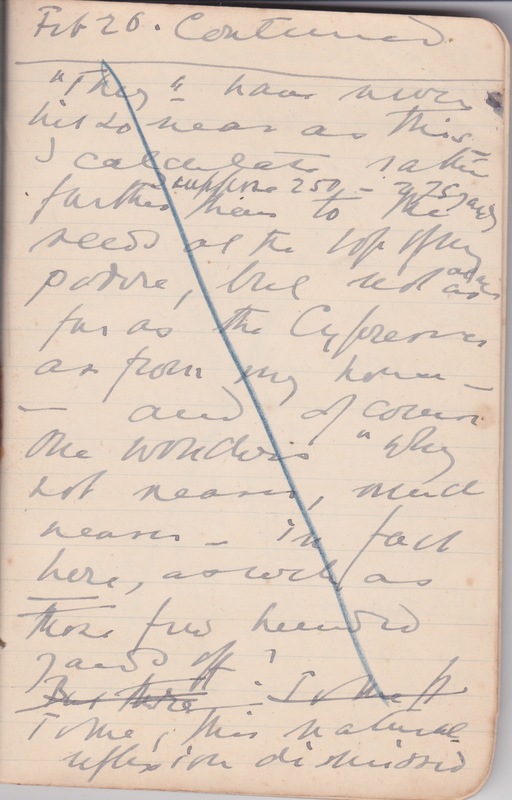 Feb 26. Continued.
"They" have never
hit so near as this
I calculate rather
suppose 250 - 275 yards
further than to the
reeds at the top of my
padore, but not
as far as the Cypresses
as from my house -
- and of course
one wonders "why
not nearer, much
nearer - in fact
here, as well as
those few hundred
yards off?
But there - To me it
To me, this natural
reflexion dismissed